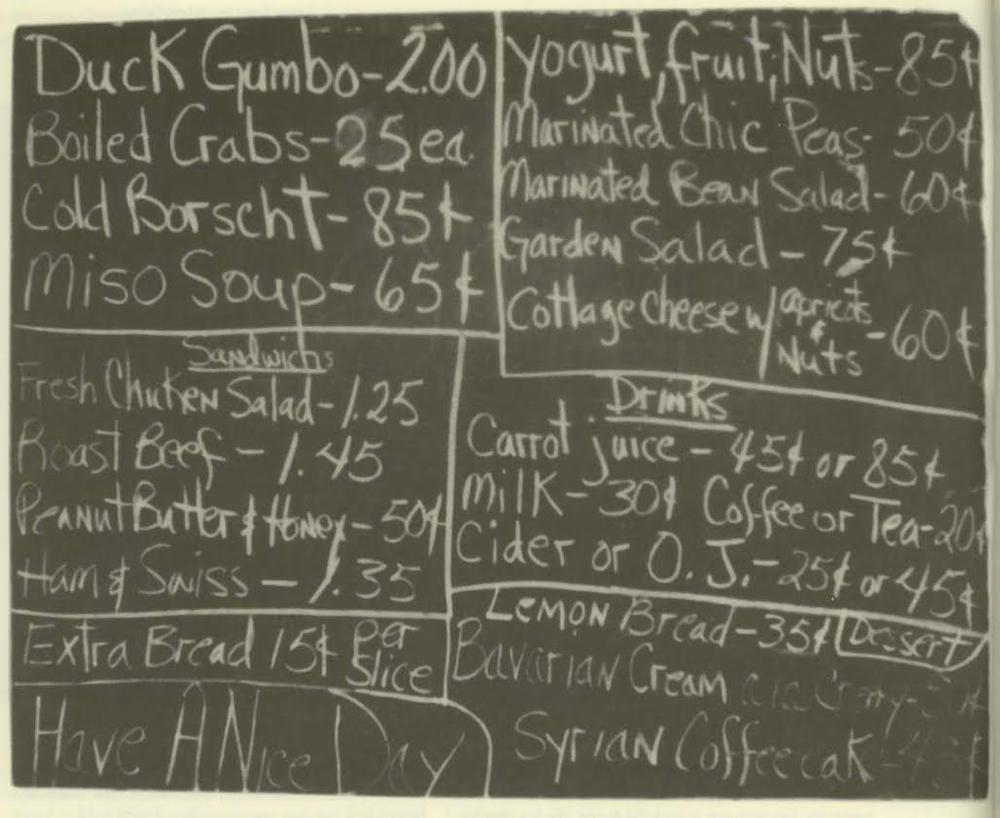 Duck Gumbo-2.00
Boiled Crabs-25ea.
Cold Borscht-85¢
Miso Soup-65¢
Yogurt, fruit, Nuts-85¢
Marinated Chic Peas-50¢
Marinated Bean Salad-60¢
Garden Salad-75¢
Cottage cheese w/ apricots & Nuts-60¢
Sandwichs
Fresh Chicken Salad-1.25
Roast Beef-1.45
Peanut Butter & Honey-50¢
Ham & Swiss-1.35
Extra Bread 15¢ per slice
Have A Nice Day
Drinks
Carrot juice-45¢ or 85¢
Milk-30¢ Coffee or Tea-20¢
Cider or O.J.-25¢ or 45¢
Dessert
Lemon Bread-35¢
Bavarian Cream
Syrian Coffeecak